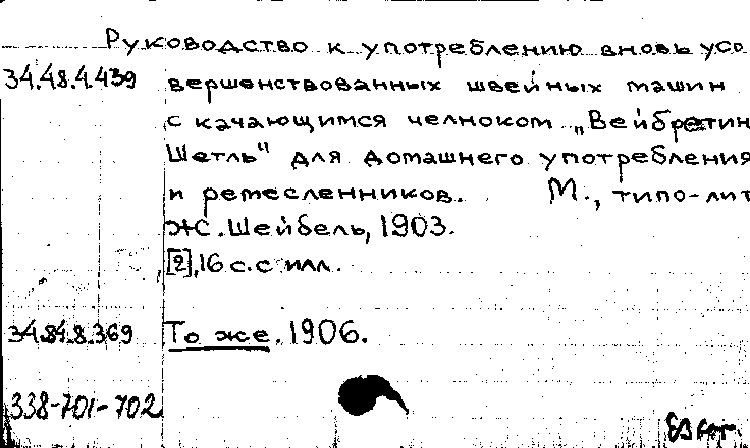 Руководство к употреблению вновь усо
34.48.4.439 вершенствованных швейных машин
с качающимся челноком „Вейбретин
Шетль" для домашнего употребления
и ремесленников. М., типо-лит
Ж. Шейбель, 1903.
[2], 16 с. с илл.
34.84.8.369 То же. 1906.
338-701-702